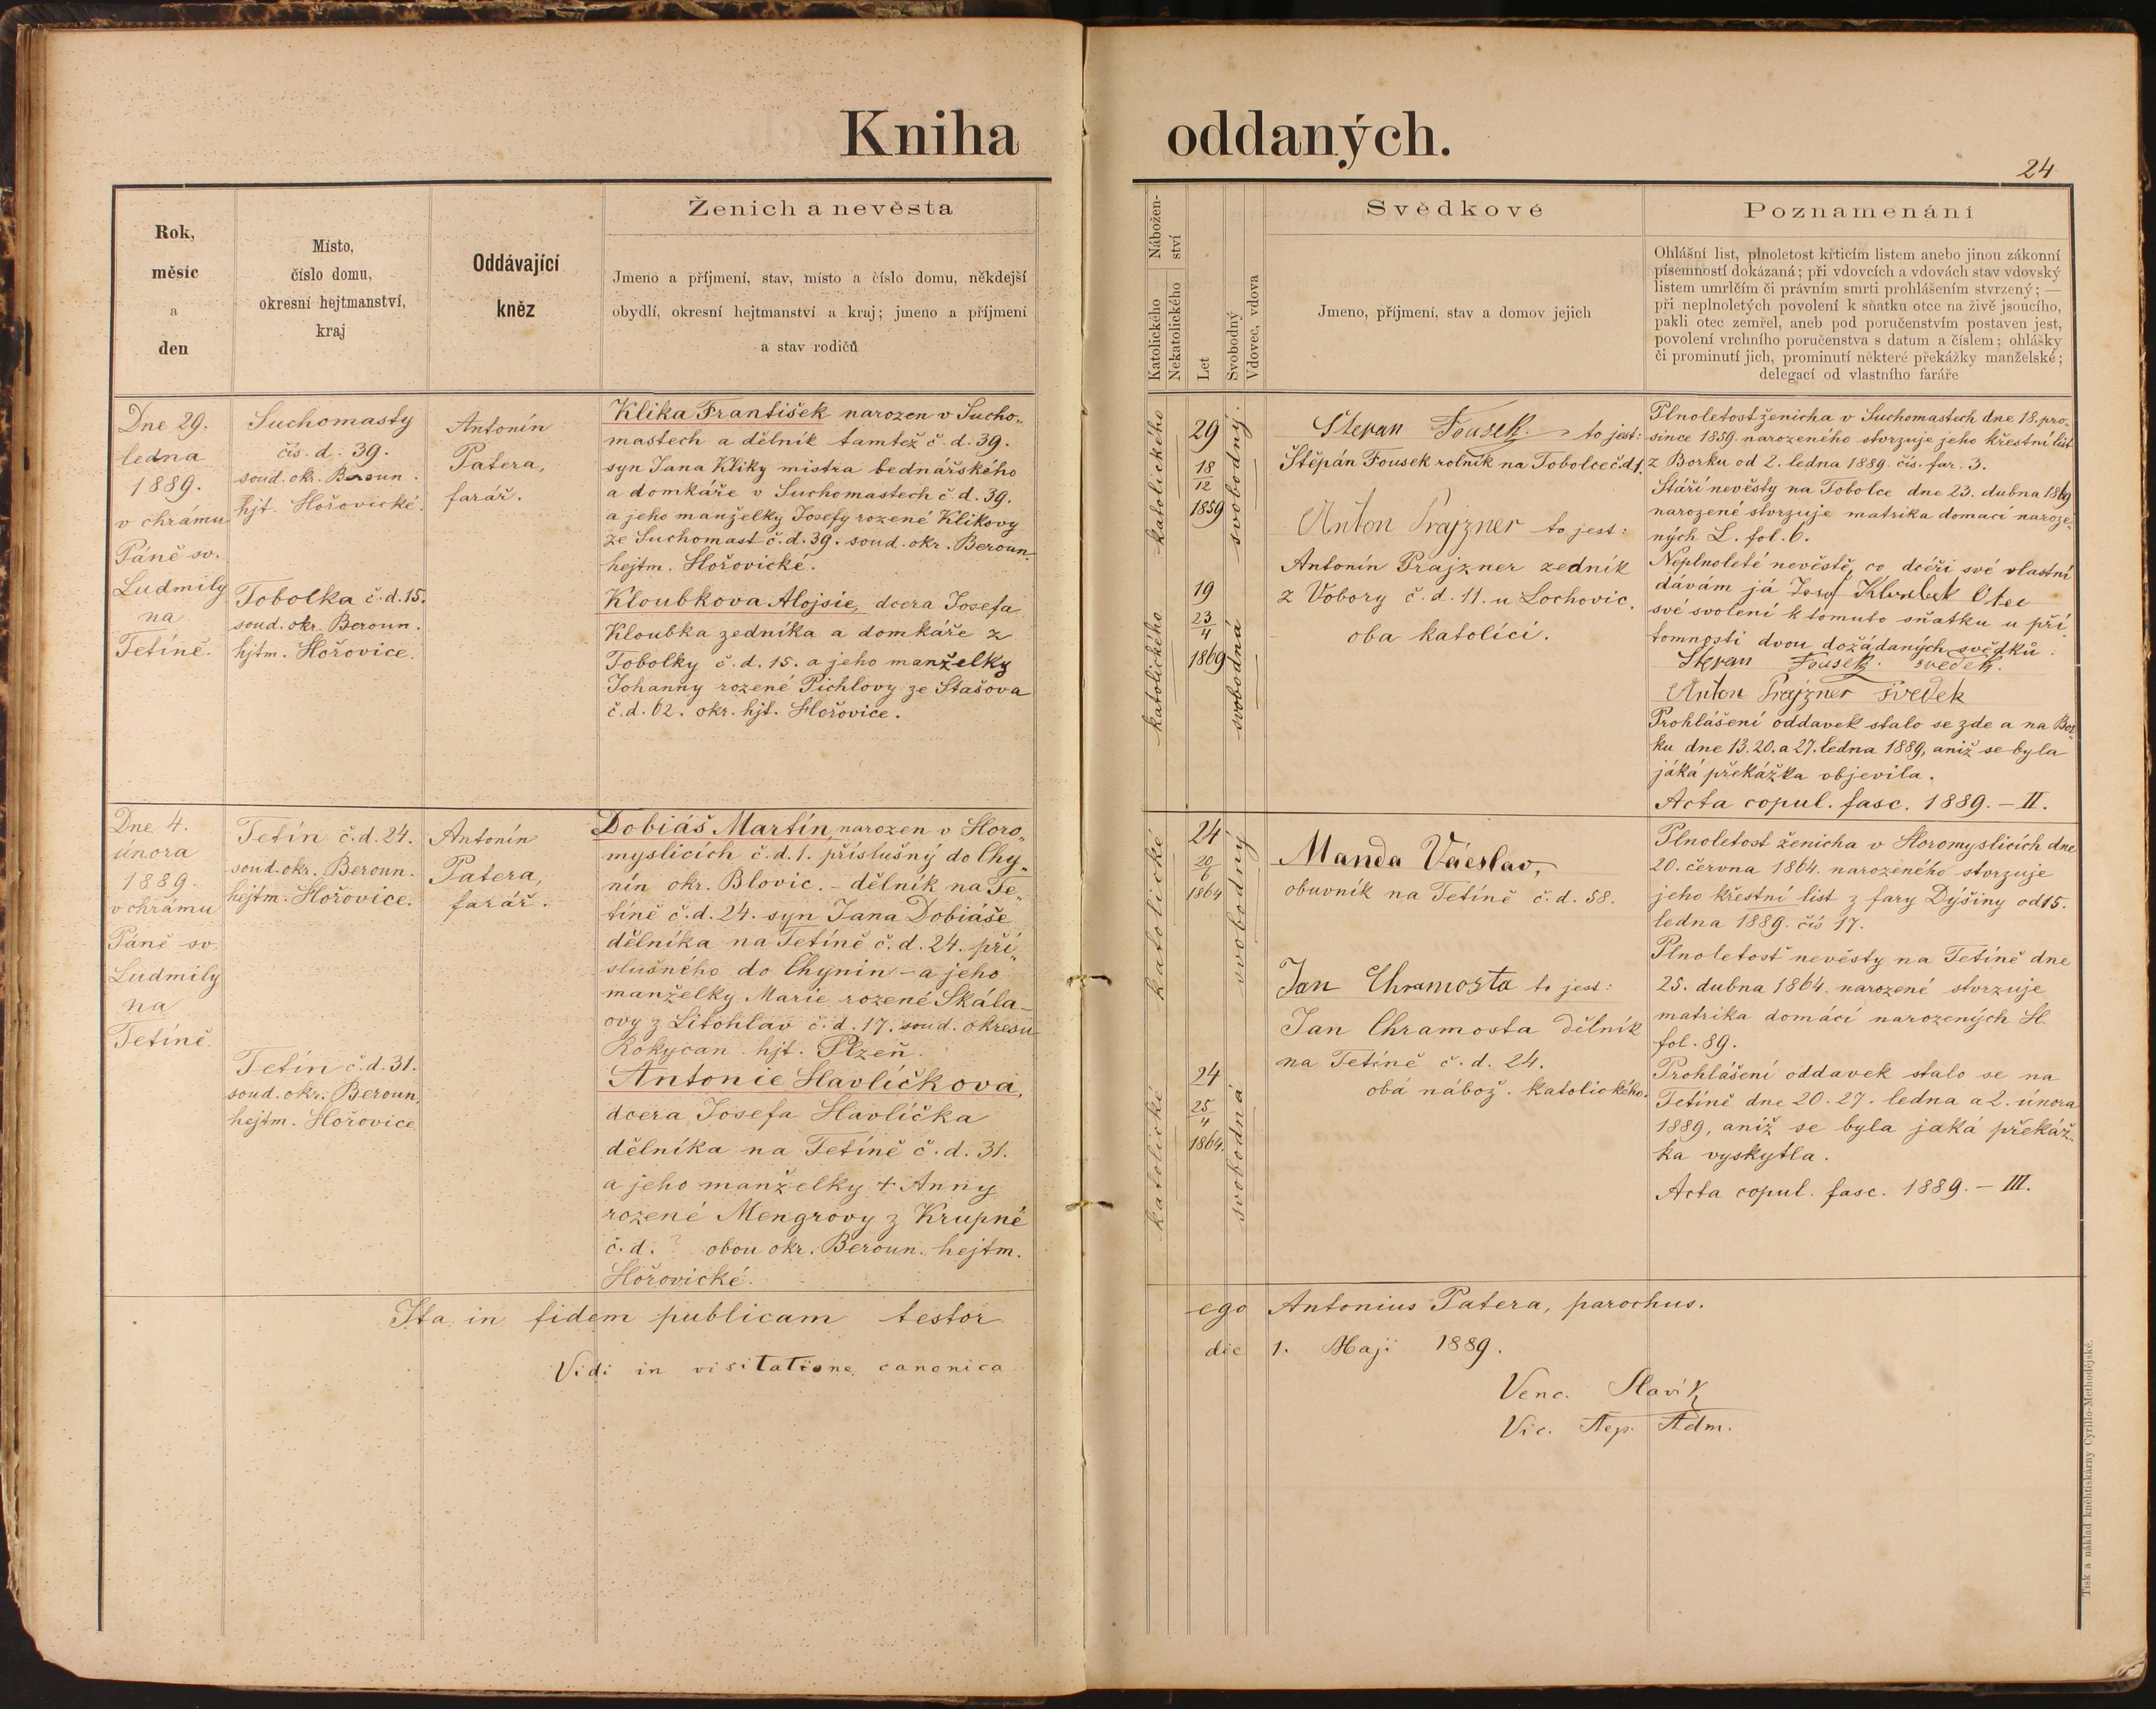 Kniha oddaných.
24
Rok,
měsíc
a
den
Místo,
číslo domu,
okresní hejtmanství,
kraj
Oddávající
kněz
Ženich a nevěsta
Jmeno a příjmení, stav, místo a číslo domu, někdejší
obydlí, okresní hejtmanství a kraj; jmeno a příjmení
a stav rodičů
Nábožen-
ství
Katolického
Nekatolického
Let
Svobodný
Vdovec, vdova
Svědkové
Jmeno, příjmení, stav a domov jejich
Poznamenání
Ohlášní list, plnoletost křticím listem anebo jinou zákonní
písemností dokázaná; při vdovcích a vdovách stav vdovský
listem umrlčím či právním smrti prohlášením stvrzený; —
při neplnoletých povolení k sňatku otce na živě jsoucího,
pakli otec zemřel, aneb pod poručenstvím postaven jest,
povolení vrchního poručenstva s datum a číslem; ohlášky
či prominutí jich, prominutí některé překážky manželské;
delegací od vlastního faráře
Dne 29.
ledna
1889.
v chrámu
Páně sv.
Ludmily
na
Tetíně.
Suchomasty
čís. d. 39.
soud. okr. Beroun.
hjt. Hořovické.
Tobolka č. d. 15.
soud. okr. Beroun.
hjtm. Hořovice.
Antonín
Patera,
farář.
Klika František narozen v Sucho„
mastech a dělník tamtež č. d. 39.
syn Jana Kliky mistra bednářského
a domkáře v Suchomastech č. d. 39.
a jeho manželky Josefy rozené Klikovy
ze Suchomast č. d. 39. soud. okr. Beroun.
hejtm. Hořovické.
Kloubkova Alojsie, dcera Josefa
Kloubka zedníka a domkáře z
Tobolky č. d. 15. a jeho manželky
Johanny rozené Pichlovy ze Stašova
č. d. 62. okr. hjt. Hořovice.
katolického
29
18
12
1859
svobodný.
katolického
19
23
4
1869
svobodná
Štepan Fousek. to jest:
Štěpán Fousek rolník na Tobolce č. d. 1.
Anton Prajzner to jest:
Antonín Prajzner zedník
z Vobory č. d. 11. u Lochovic.
oba katolíci.
Plnoletost ženicha v Suchomastech dne 18. pro-
since 1859. narozeného stvrzuje jeho křestní list
z Borku od 2. ledna 1889. čís. far. 3.
Stáří nevěsty na Tobolce dne 23. dubna 1869
narozené stvrzuje matrika domácí naroze-
ných L. fol. 6.
Neplnoleté nevěstě, co dcéři své vlastní
dávám já Josef Kloubek Otec
své svolení k tomuto sňatku u pří„
tomnosti dvou dožádaných svědků:
Štepan Fousek. svedek.
Anton Prajzner svedek
Prohlášení oddavek stalo se zde a na Bor„
ku dne 13. 20. a 27. ledna 1889, aniž se byla
jáká překážka objevila.
Acta copul. fasc. 1889. – II.
Dne 4.
února
1889.
v chrámu
Páně sv.
Ludmily
na
Tetíně.
Tetín č. d. 24.
soud. okr. Beroun.
hejtm. Hořovice.
Tetín č. d. 31.
soud. okr. Beroun,
hejtm. Hořovice
Antonín
Patera,
farář.
Dobiáš Martin, narozen v Horo„
myslicích č. d. 1. příslušný do Chy„
nín okr. Blovic. – dělník na Te„
tíně č. d. 24. syn Jana Dobiáše
dělníka na Tetíně č. d. 24. pří„
slušného do Chynin – a jeho
manželky Marie rozené Skála-
ovy z Litohlav č. d. 17. soud. okresu
Rokycan hjt. Plzeň.
Antonie Havlíčkova,
dcera Josefa Havlíčka
dělníka na Tetíně č. d. 31.
a jeho manželky + Anny
rozené Mengrovy z Krupné
č. d. ? obou okr. Beroun. hejtm.
Hořovické.
katolické
24
20
6
1864
svobodný
katolické
24
25
4
1864.
svobodná
Manda Václav,
obuvník na Tetíně č. d. 58.
Jan Chramosta to jest:
Jan Chramosta dělník
na Tetíně č. d. 24.
obá nábož. katolického.
Plnoletost ženicha v Horomyslicích dne
20. června 1864. narozeného stvrzuje
jeho křestní list z fary Dýšiny od 15.
ledna 1889. čís 17.
Plnoletost nevěsty na Tetíně dne
25. dubna 1864. narozené stvrzuje
matrika domácí narozených H.
fol. 89.
Prohlášení oddavek stalo se na
Tetíně dne 20. 27. ledna a 2. února
1889, aniž se byla jaká překáž„
ka vyskytla.
Acta copul. fasc. 1889. – III.
Ita in fidem publicam testor ego Antonius Patera, parochus.
Vidi in visitatione canonica die 1. Maji 1889.
Venc. Slavík
Vic. Adm.
Tisk a náklad kněhtiskárny Cyrillo-Methodějské.